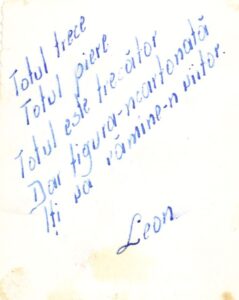 Totul trece
Totul piere
Totul este trecător
Dar figura-ncartonată
Îți va rămîne-n viitor.
Leon